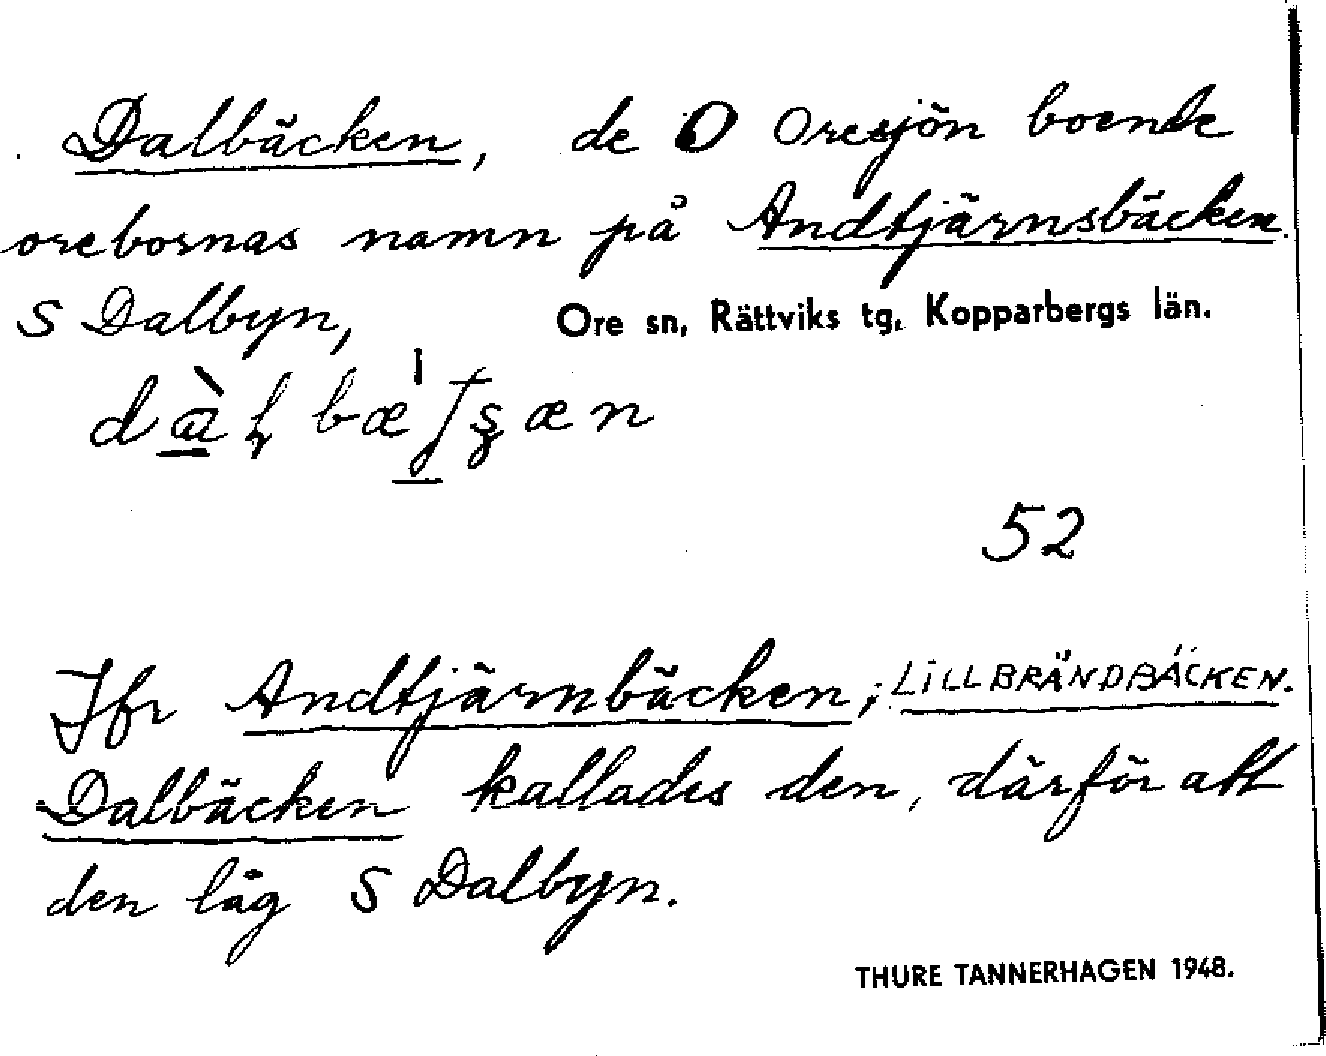 Dalbäcken, de O Oresjön boende
orebornas namn på Andtjärnsbäcken.
S Dalbyn, Ore sn, Rättviks tg, Kopparbergs län.
52
Jfr Andtjärnbäcken; LILLBRÄNDBÄCKEN.
Dalbäcken kallades den, därför att
den låg S Dalbyn.
THURE TANNERHAGEN 1948.